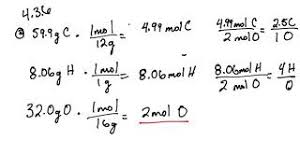 4.36
@ 59.9g C · 1mol/12g = 4.99 mol C
4.99mol C/2 mol O = 2.5C/1 O
8.06g H · 1mol/1g = 8.06mol H
8.06mol H/2 mol O = 4H/O
32.0g O · 1mol/16g = 2mol O